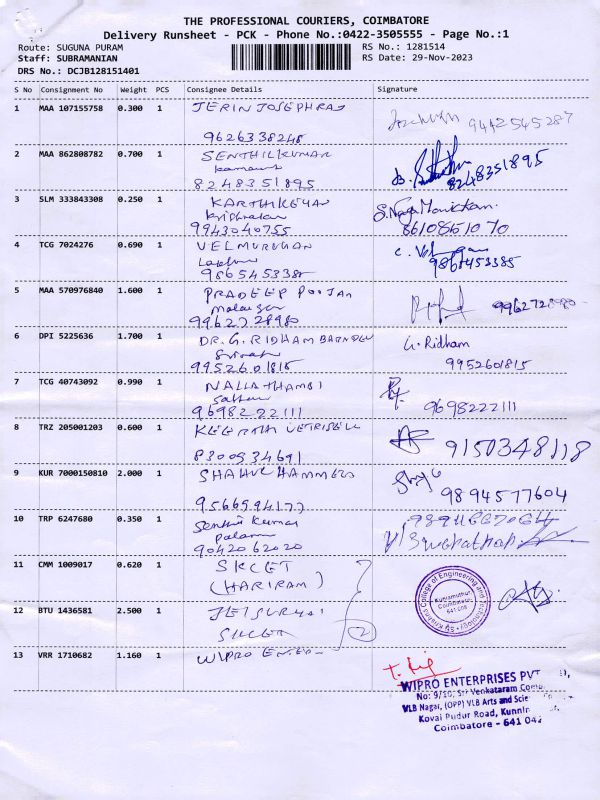 THE PROFESSIONAL COURIERS, COIMBATORE
Delivery Runsheet - PCK - Phone No.:0422-3505555 - Page No.:1
Route: SUGUNA PURAM
RS No.: 1281514
Staff: SUBRAMANIAN
RS Date: 29-Nov-2023
DRS No.: DCJB128151401
S No Consignment No Weight PCS Consignee Details Signature
1 MAA 107155758 0.300 1 JERIN JOSEPHRAJ
9626338248 9442545287
2 MAA 862808782 0.700 1 SENTHILKUMAR
8248351895 8248351895
3 SLM 333843308 0.250 1 KARTHIKEYAN S. Naga Manickam
9943040755 8610861070
4 TCG 7024276 0.690 1 VELMURUGAN
9865453385 9865453385
5 MAA 570976840 1.600 1 PRADEEP POOJAN
9962728980 9962728980
6 DPI 5225636 1.700 1 DR. G. RIDHAM G. Ridham
9952601815 9952601815
7 TCG 40743092 0.990 1 NALLATHAMBI
9698222111 9698222111
8 TRZ 205001203 0.600 1 KEERTHI
8300534691 9150348118
9 KUR 7000150810 2.000 1 SHAHUL HAMMEED
9566594177 9894577604
10 TRP 6247680 0.350 1 Senthil Kumar
9042062020
11 CMM 1009017 0.620 1 SKCET
(HARIRAM)
Sri Krishna College of Engineering and Technology
Kuniamuthur
Coimbatore
641 008
12 BTU 1436581 2.500 1
SKCET
2
13 VRR 1710682 1.160 1 WIPRO ENTER
WIPRO ENTERPRISES PVT
No: 9/10, Sri Venkataram
VLB Nagar, (OPP) VLB Arts and
Kovai Pudur Road,
Coimbatore - 641 042